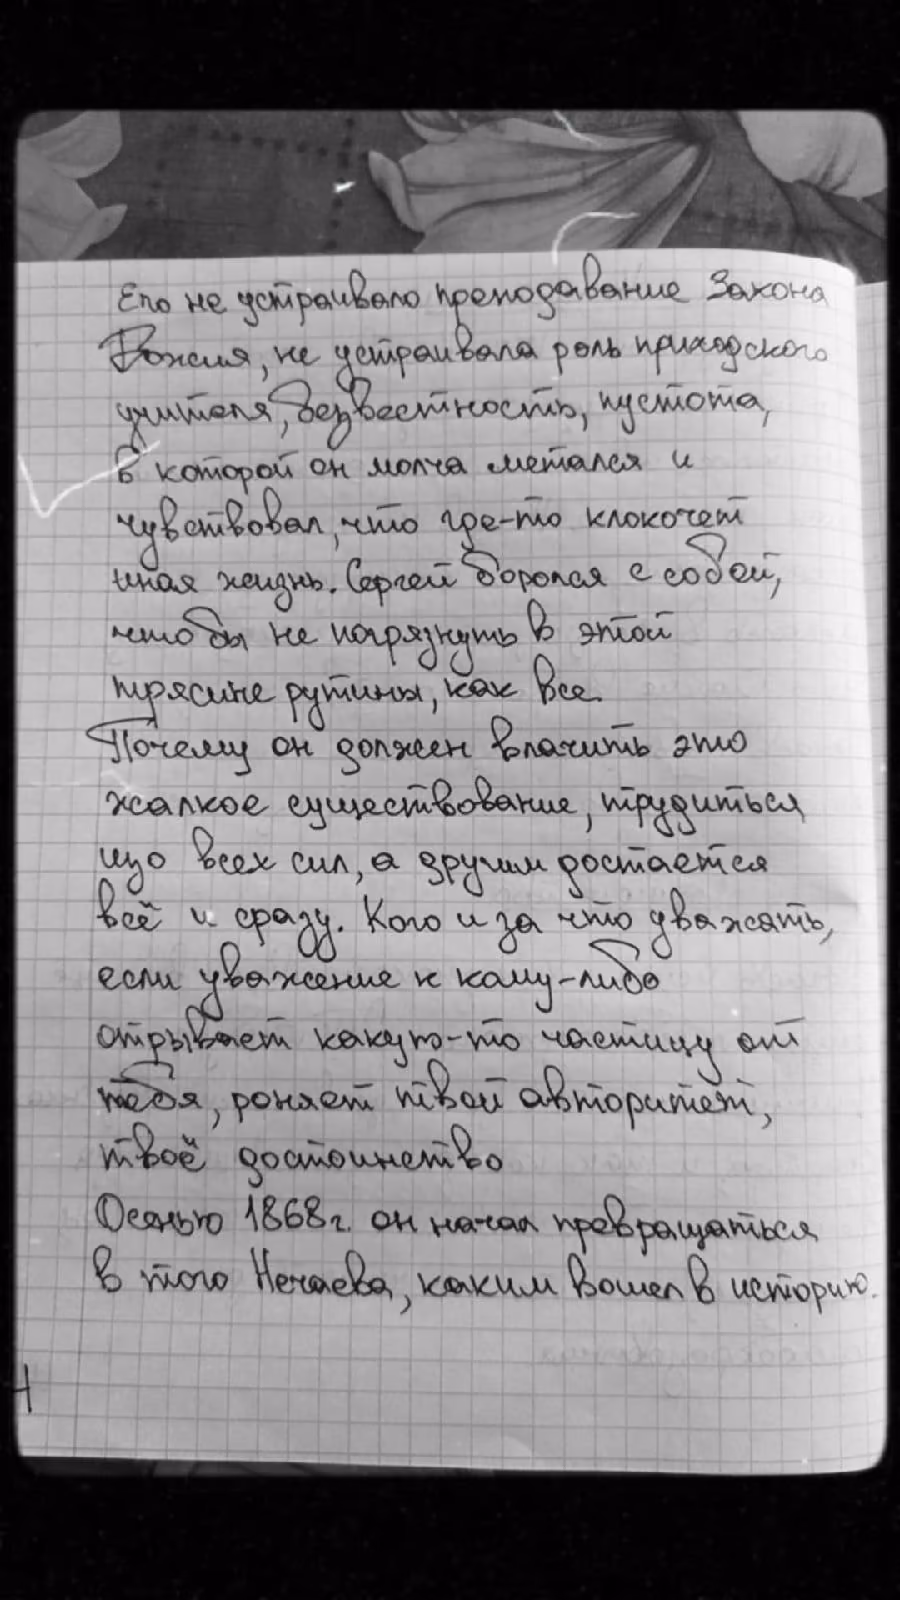 Его не устраивало преподавание Закона
Божия, не устраивала роль приходского
учителя, безвестность, пустота,
в которой он молча метался и
чувствовал, что где-то клокочет
иная жизнь. Сергей боролся с собой,
чтобы не погрязнуть в этой
трясине рутины, как все.
Почему он должен влачить это
жалкое существование, трудиться
изо всех сил, а другим достается
всё и сразу. Кого и за что уважать,
если уважение к кому-либо
отрывает какую-то частицу от
тебя, роняет твой авторитет,
твоё достоинство
Осенью 1868г. он начал превращаться
в того Нечаева, каким вошел в историю.